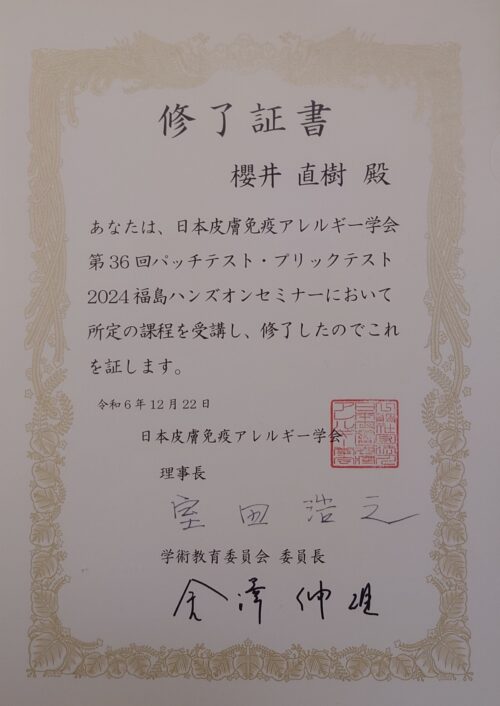 修了証書
櫻井 直樹 殿
あなたは、日本皮膚免疫アレルギー学会
第36回パッチテスト・プリックテスト
2024福島ハンズオンセミナーにおいて
所定の課程を受講し、修了したのでこれ
を証します。
令和6年12月22日
日本皮膚免疫アレルギー学会
理事長
室田 浩之
学術教育委員会 委員長